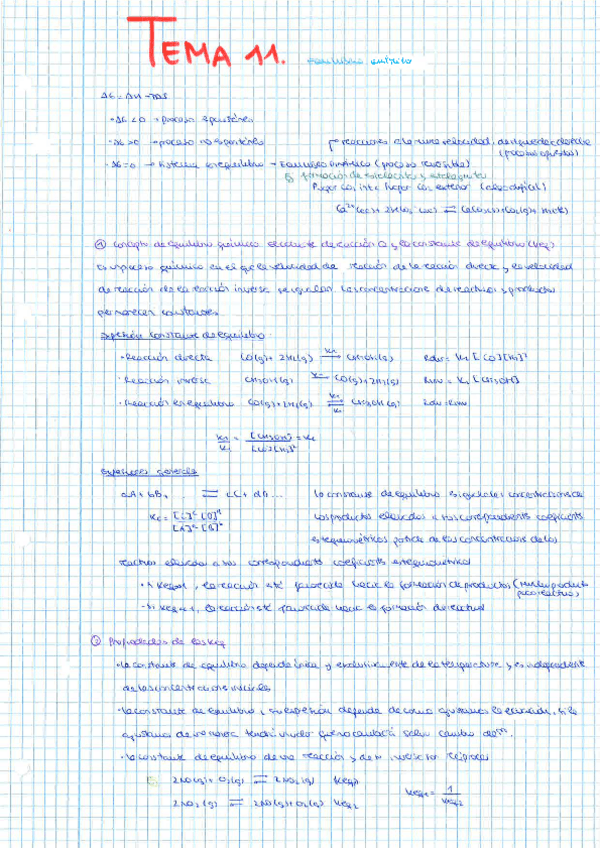 TEMA 11. equilibrio químico
ΔG = ΔH - TΔS
· ΔG < 0 → proceso espontáneo
· ΔG > 0 → proceso no espontáneo → reacciones a la misma velocidad, de izquierda a derecha
(procesos opuestos)
· ΔG = 0 → sistema en equilibrio → Equilibrio dinámico (proceso reversible)
formación de estalactitas y estalagmitas
① Concepto de equilibrio químico cociente de reacción Q y la constante de equilibrio (Keq)
Es un proceso químico en el que la velocidad de reacción de la reacción directa y la velocidad
de reacción de la reacción inversa se igualan. Las concentraciones de reactivos y productos
permanecen constantes
Expresión constante de equilibrio:
· Reacción directa CO(g) + 2H₂(g) → CH₃OH(g) Rdir = K₁ [CO][H₂]²
· Reacción inversa CH₃OH(g) → CO(g) + 2H₂(g) Rinv = K₁ [CH₃OH]
· Reacción en equilibrio CO(g) + 2H₂(g) ⇌ CH₃OH(g) Rdir = Rinv
K₁/K₁ = [CH₃OH]/[CO][H₂]² = Kc
Expresiones generales
aA + bB... ⇌ cC + dD... La constante de equilibrio es igual a las concentraciones de
Kc = [C]ᶜ [D]ᵈ / [A]ᵃ [B]ᵇ los productos elevados a sus correspondientes coeficientes
estequiométricos partido de las concentraciones de los
reactivos elevados a sus correspondientes coeficientes estequiométricos
la reacción está favorecida hacia la formación de productos (mucho producto
poco reactivo)
la reacción está favorecida hacia la formación de reactivos
② Propiedades de las Keq
· La constante de equilibrio depende única y exclusivamente de la temperatura y es independiente
de las concentraciones iniciales
· La constante de equilibrio, su expresión depende de como ajustamos la ecuación, si la
ajustamos de una manera tendrá un valor que no cambiará salvo cambio de Tª.
· La constante de equilibrio de una reacción y de su inversa son recíprocas
2NO(g) + O₂(g) ⇌ 2NO₂(g) Keq₁
2NO₂(g) ⇌ 2NO(g) + O₂(g) Keq₂ Keq₁ = 1/Keq₂